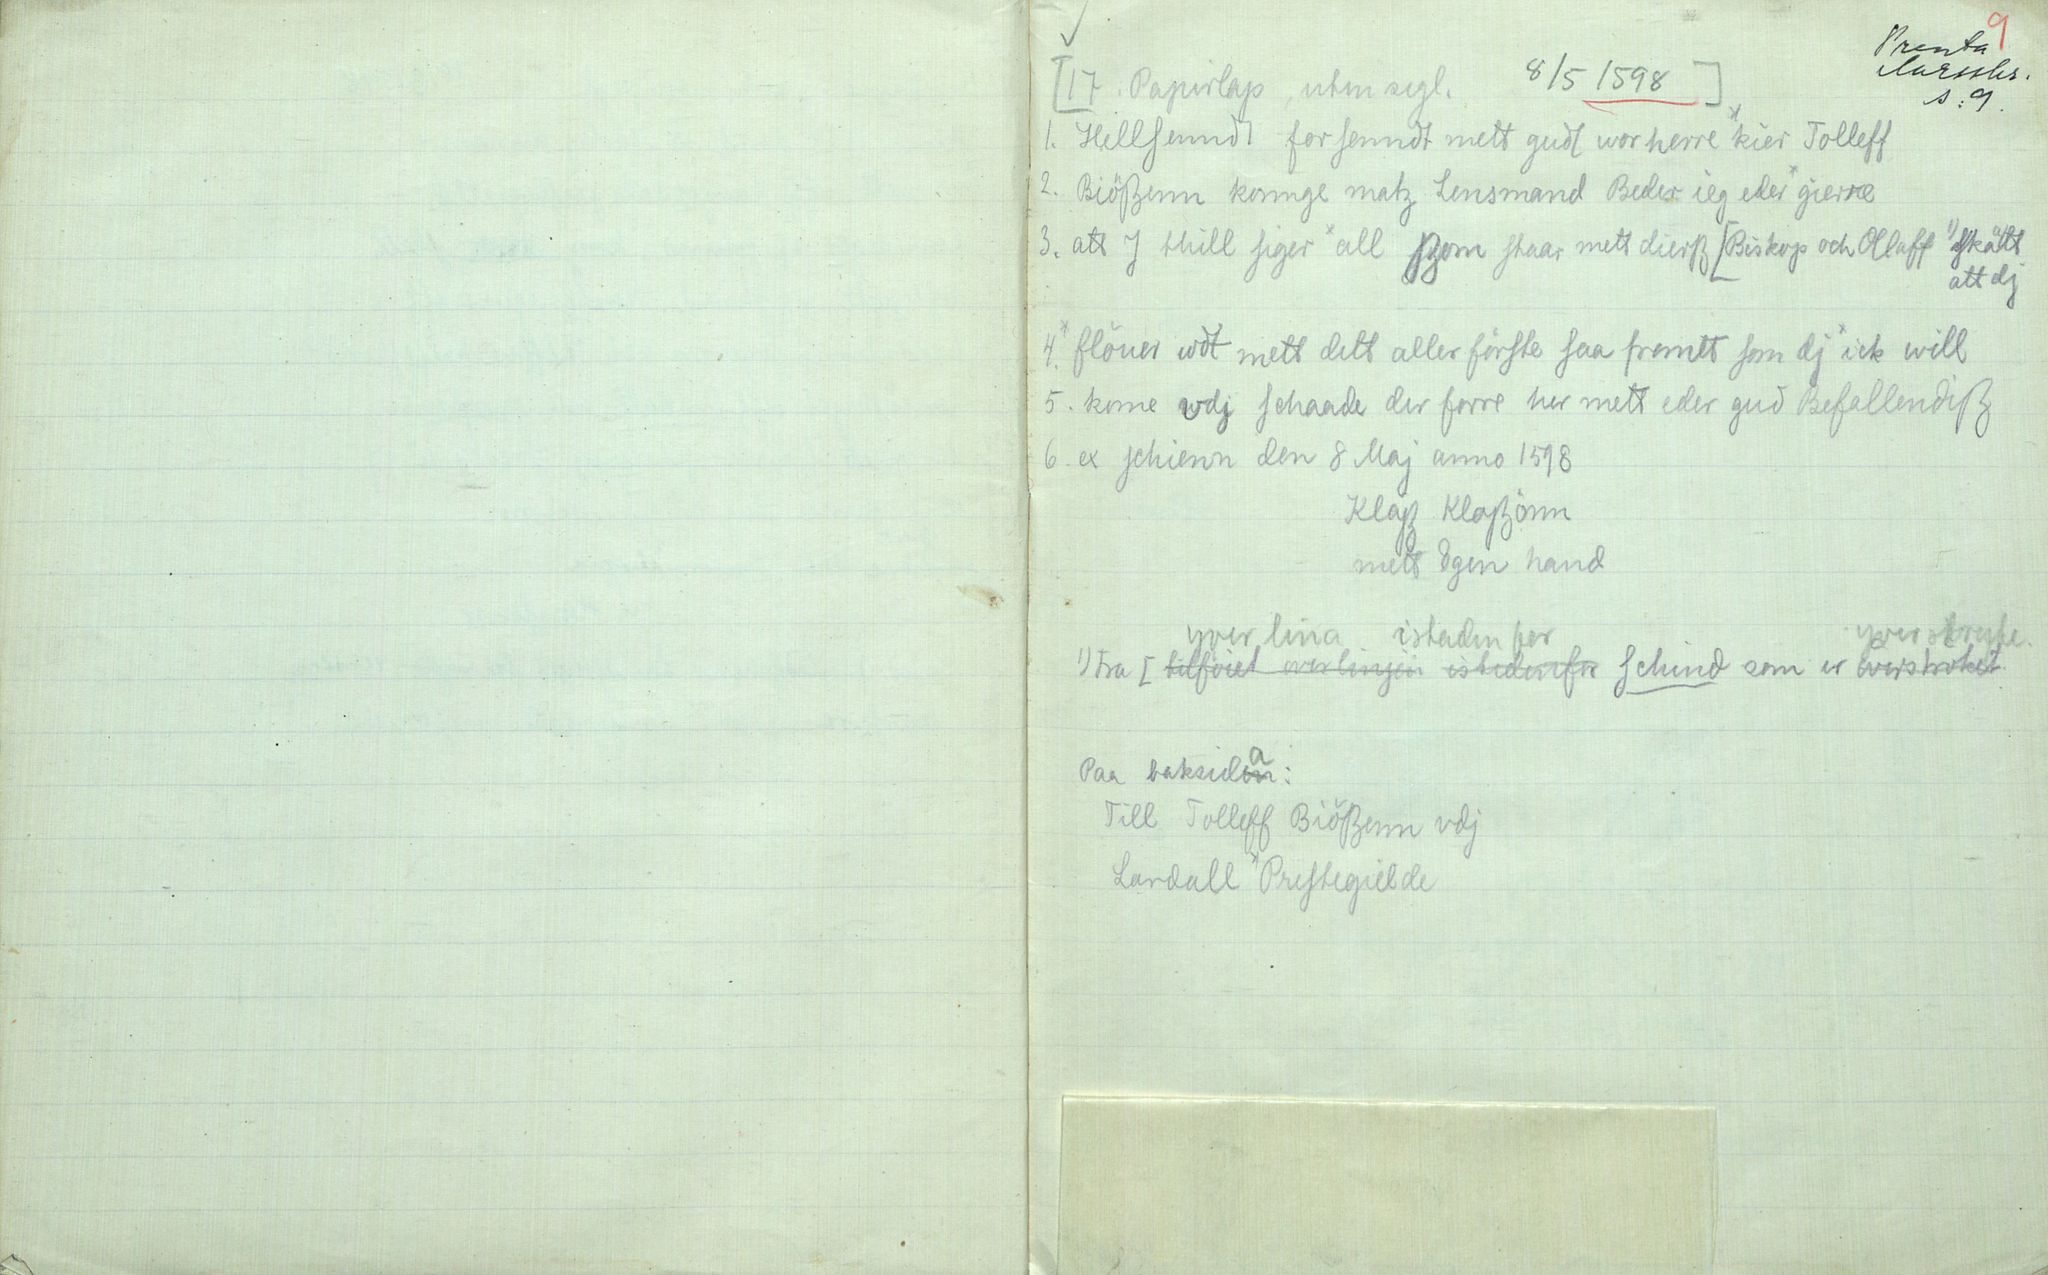 9
Prenta
s: 9.
[17. Papirlap, utan segl. 8/5 1598]
1. Hellsenndt forsenndt mett gudt wor herre *kier Tolleff
2. Biößenn konnge matz Lensmand Beder ieg eder *gierre
3. att J thill siger *all ßom staar mett dierß [Biskop och Ollaff 1) skätt
att dj
4. *flöuer wdt mett dett aller förste saa fremtt som dj *ick will
5. kome wdj schaade der forre her mett eder gud Befallendiß
6. ex schienn den 8 Maj anno 1598
Klaß Klaßönn
mett Egen hand
yver lina istaden for yverstroke.
1) Fra [ tilføiet over linjen istedenfor schind som er overstrøket
Paa baksiden a:
Till Tolleff Biößenn vdj
Lardall *Prestegielde